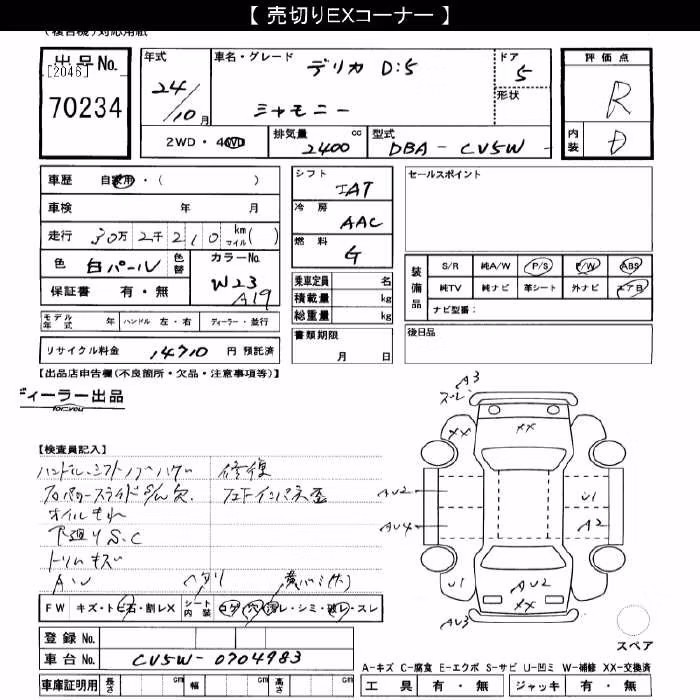 【 売切りEXコーナー 】
(複合機)対応用紙
出品No. [2046] 70234
年式 24/10月
車名・グレード デリカ D:5 シャモニー
ドア 5
形状
評価点 R
内装 D
2WD・4WD 排気量 2400 cc 型式 DBA - CV5W -
車歴 自家用・( )
車検 年 月
走行 30万 2千 210 km マイル( )
色 白パール 色替 カラーNo. W23 A19
保証書 有・無
モデル年式 年 ハンドル 左・右 ディーラー・並行
リサイクル料金 14710 円 預託済
シフト IAT
冷房 AAC
燃料 G
乗車定員 名
積載量 kg
総重量 kg
書類期限 月 日
セールスポイント
装備品 S/R 純A/W P/S P/W ABS
純TV 純ナビ 革シート 外ナビ エアB
ナビ型番：
後日品
【出品店申告欄(不良箇所・欠品・注意事項等)】
ディーラー出品
for you
【検査員記入】
ハンドル、シフトノブハゲ 修復
オイルもれ
下廻りS.C
トリムキズ
AW ヘタリ
FW キズ・トビ石・割レX シート内装 コゲ・穴・汚レ・シミ・破レ・スレ
登録No.
車台No. CV5W-0704983
車庫証明用 長さ cm 幅 cm 高さ cm
A3
スレ
XX XX
AU2 U1
AU4 A2
U1 AU2
XX
AU3
スペア
A-キズ C-腐食 E-エクボ S-サビ U-凹ミ W-補修 XX-交換済
工具 有・無 ジャッキ 有・無